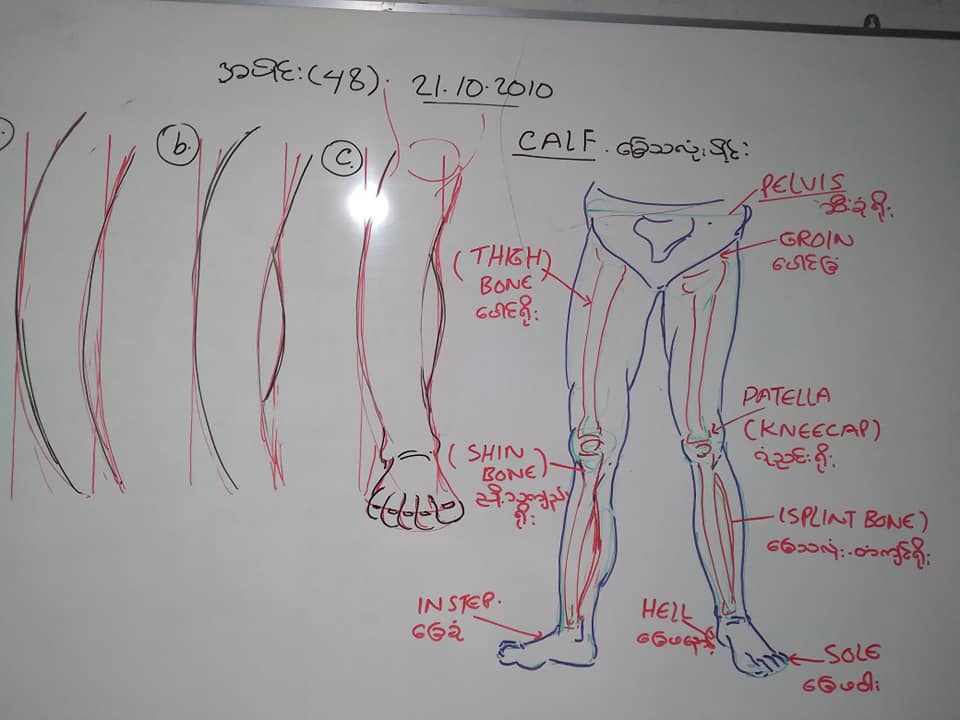 အပိုင်း(48). 21.10.2010
b.
c.
CALF. ခြေသလုံးပိုင်း
PELVIS
GROIN
ပေါင်ခြံ
(THIGH)
BONE
ပေါင်ရိုး
PATELLA
(KNEECAP)
(SHIN
BONE)
ညို့သကျည်း
ရိုး
(SPLINT BONE)
INSTEP.
ခြေခုံ
HELL
ခြေဖနောင့်
SOLE
ခြေဖဝါး